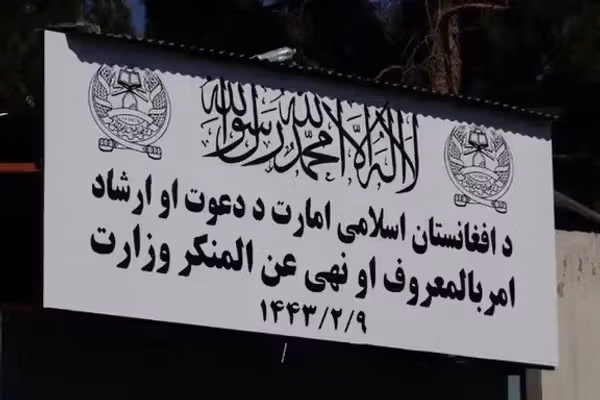 لا اله الا الله محمد رسول الله
د افغانستان اسلامی امارت د دعوت او ارشاد
امربالمعروف او نهی عن المنکر وزارت
۱۴۴۳/۲/۹